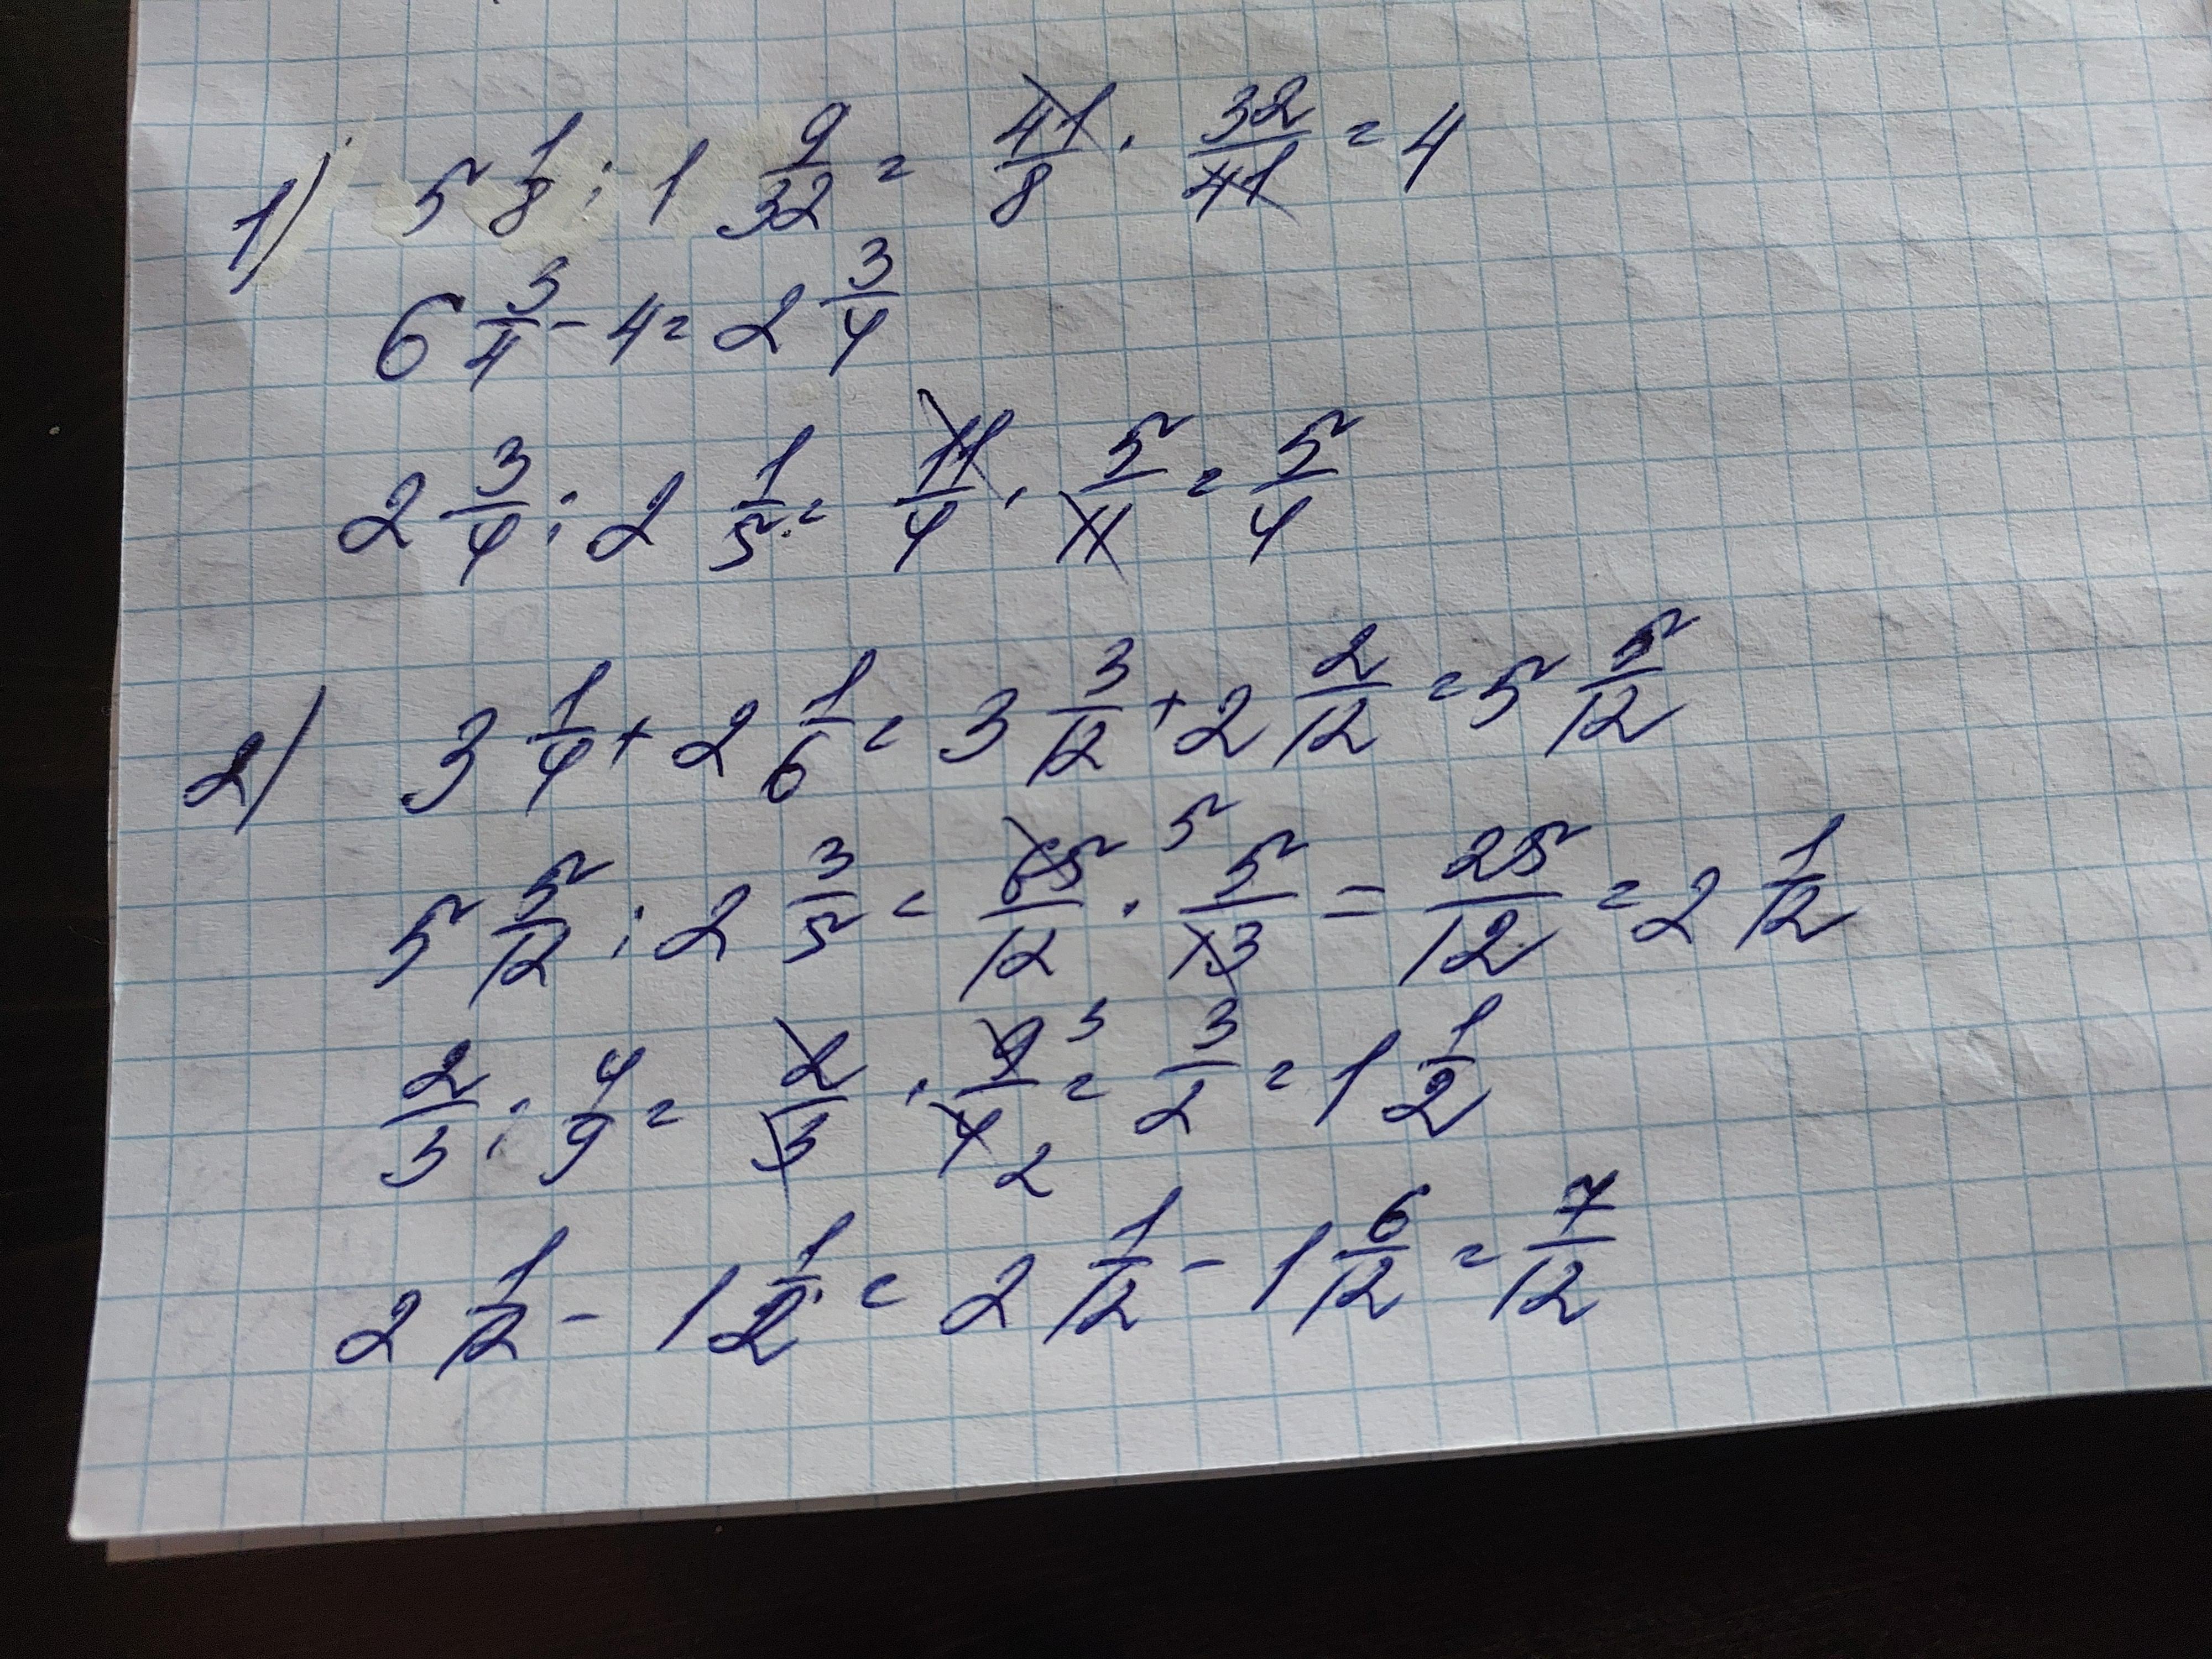 1) 5 1/8 : 1 9/32 = 41/8 · 32/41 = 4
6 3/4 - 4 = 2 3/4
2 3/4 : 2 1/5 = 11/4 · 5/11 = 5/4
2) 3 1/4 + 2 1/6 = 3 3/12 + 2 2/12 = 5 5/12
5 5/12 : 2 3/5 = 65/12 5 · 5/13 = 25/12 = 2 1/12
2/3 : 4/9 = 2/3 · 9/4 3 2 = 3/2 = 1 1/2
2 1/12 - 1 1/2 = 2 1/12 - 1 6/12 = 7/12